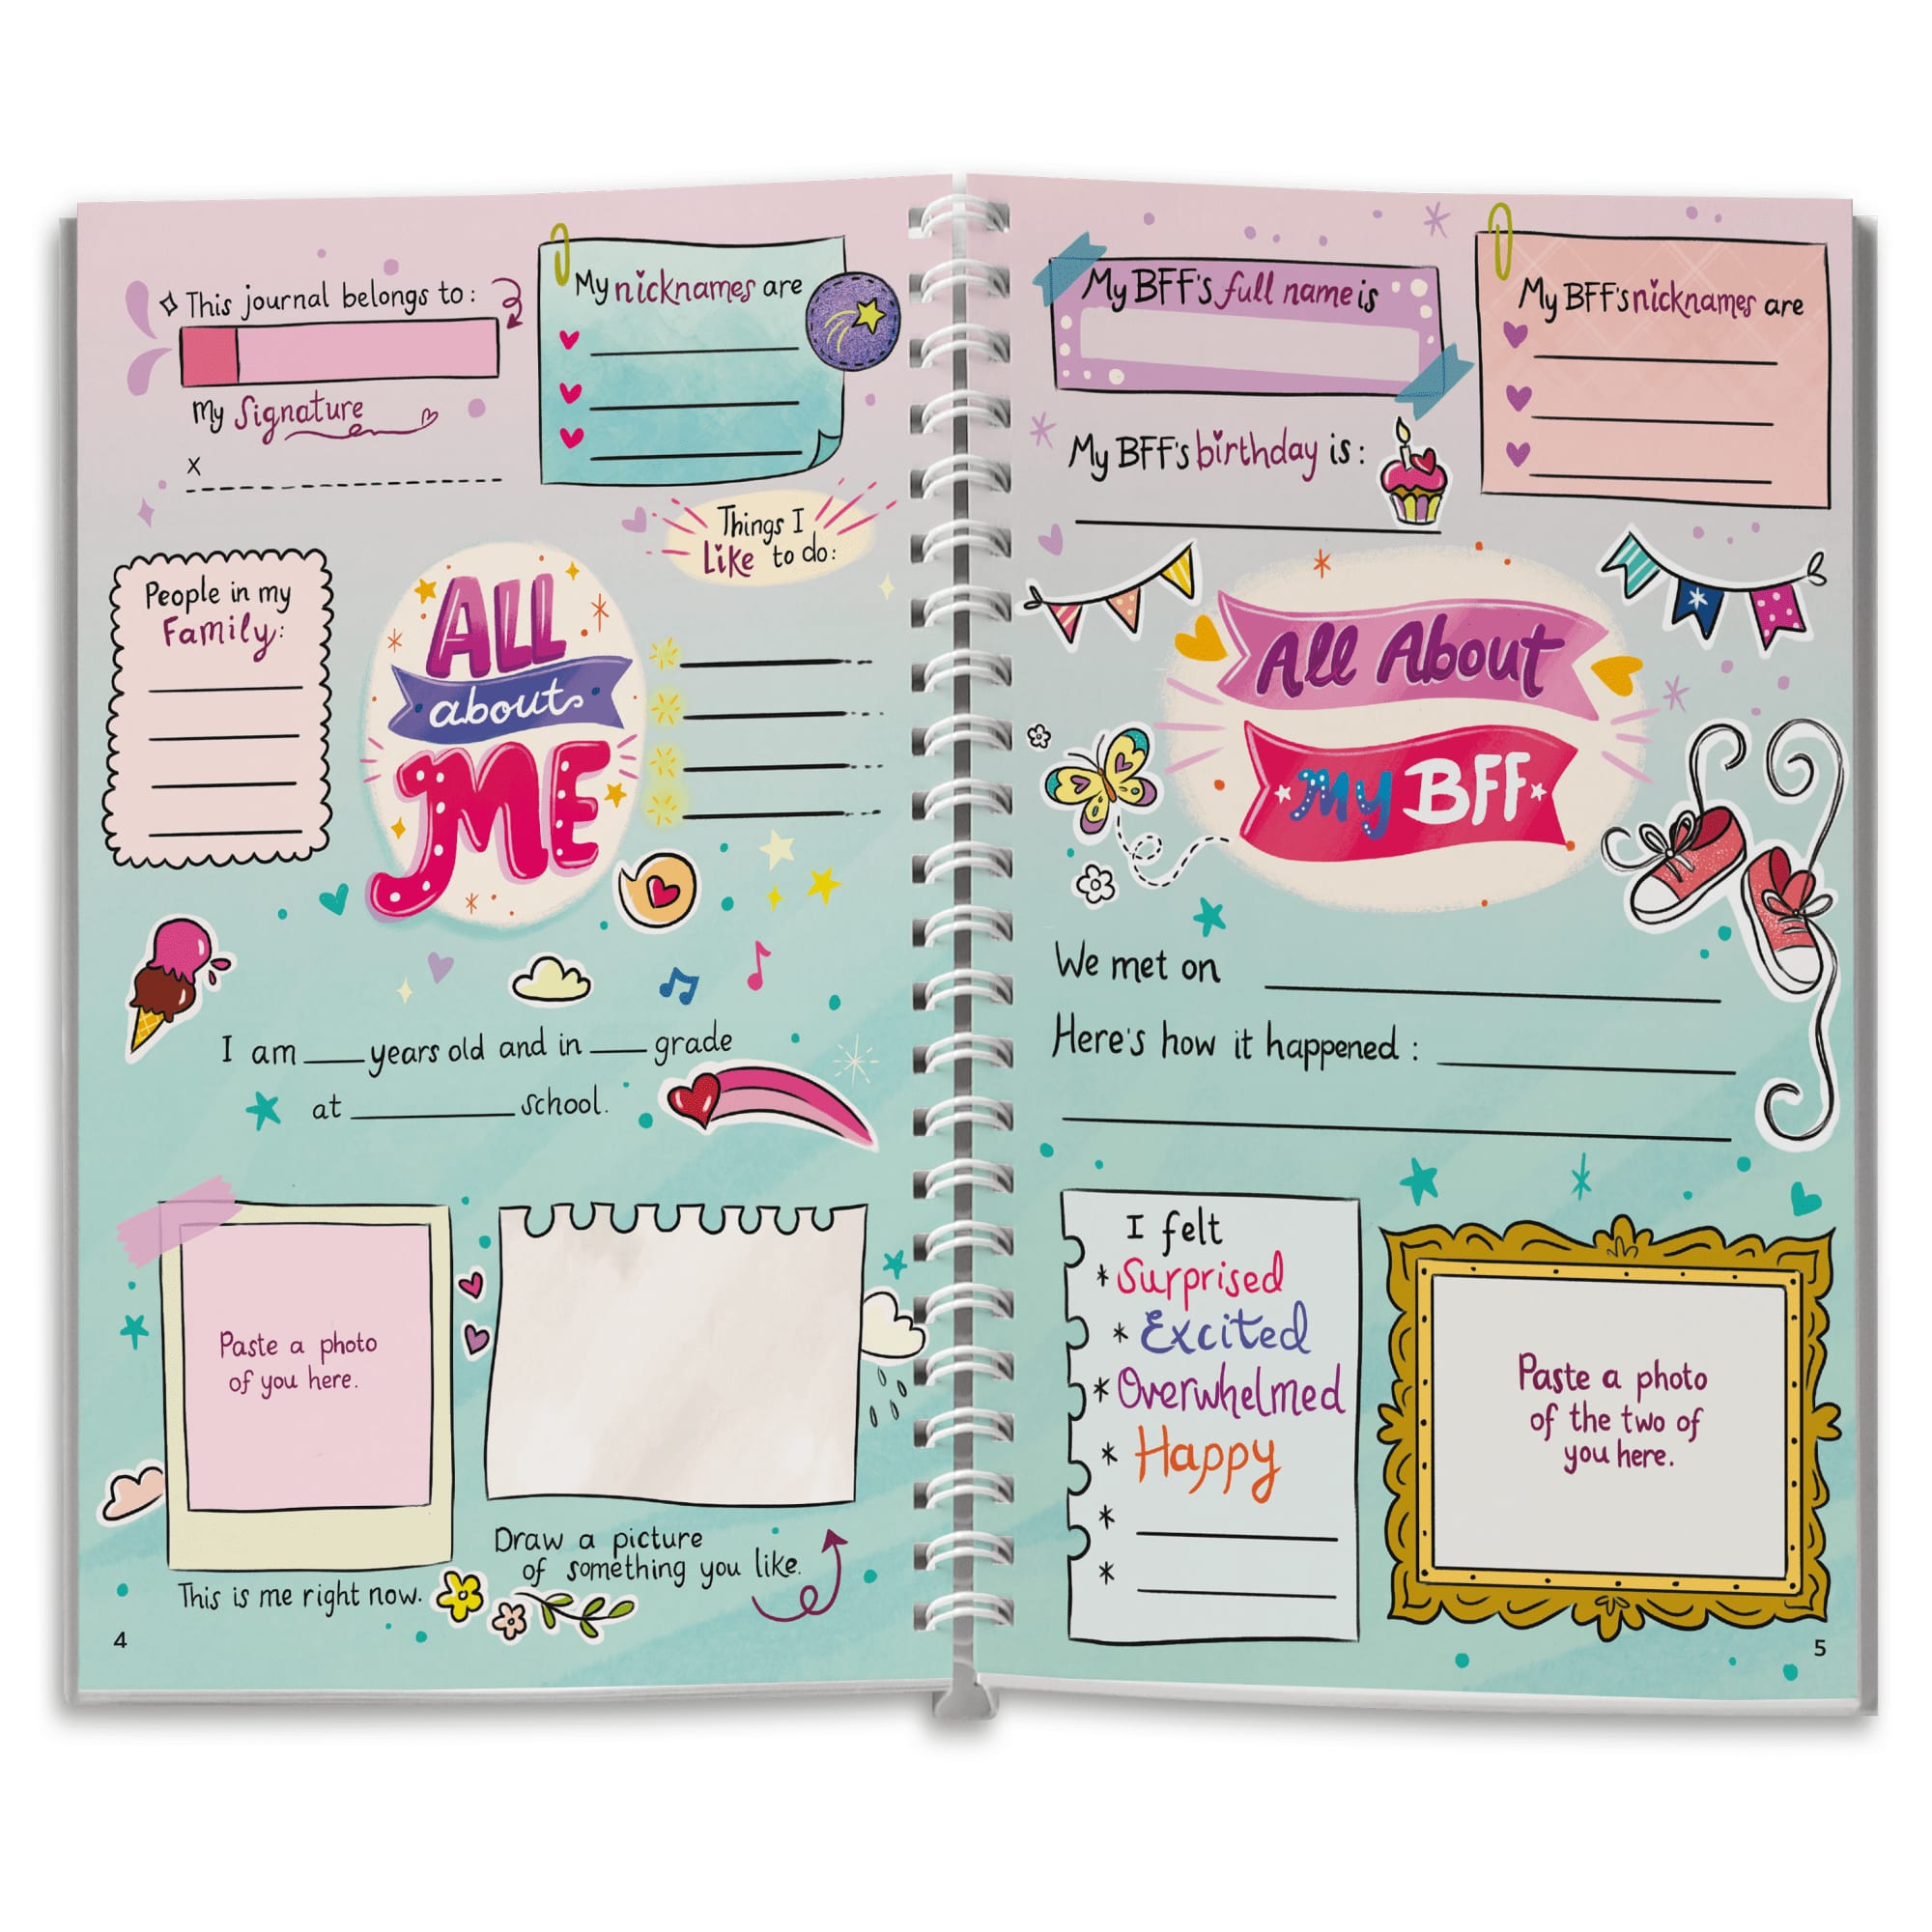 This journal belongs to:
My Signature
x
My nicknames are
Things I
Like to do:
People in my
Family:
ALL
about
ME
I am ____ years old and in ____ grade
at ____ school.
Paste a photo
of you here.
This is me right now.
Draw a picture
of something you like.
4
My BFF's full name is
My BFF's nicknames are
My BFF's birthday is:
All About
My BFF
We met on
Here's how it happened:
I felt
* Surprised
* Excited
* Overwhelmed
* Happy
*
*
Paste a photo
of the two of
you here.
5